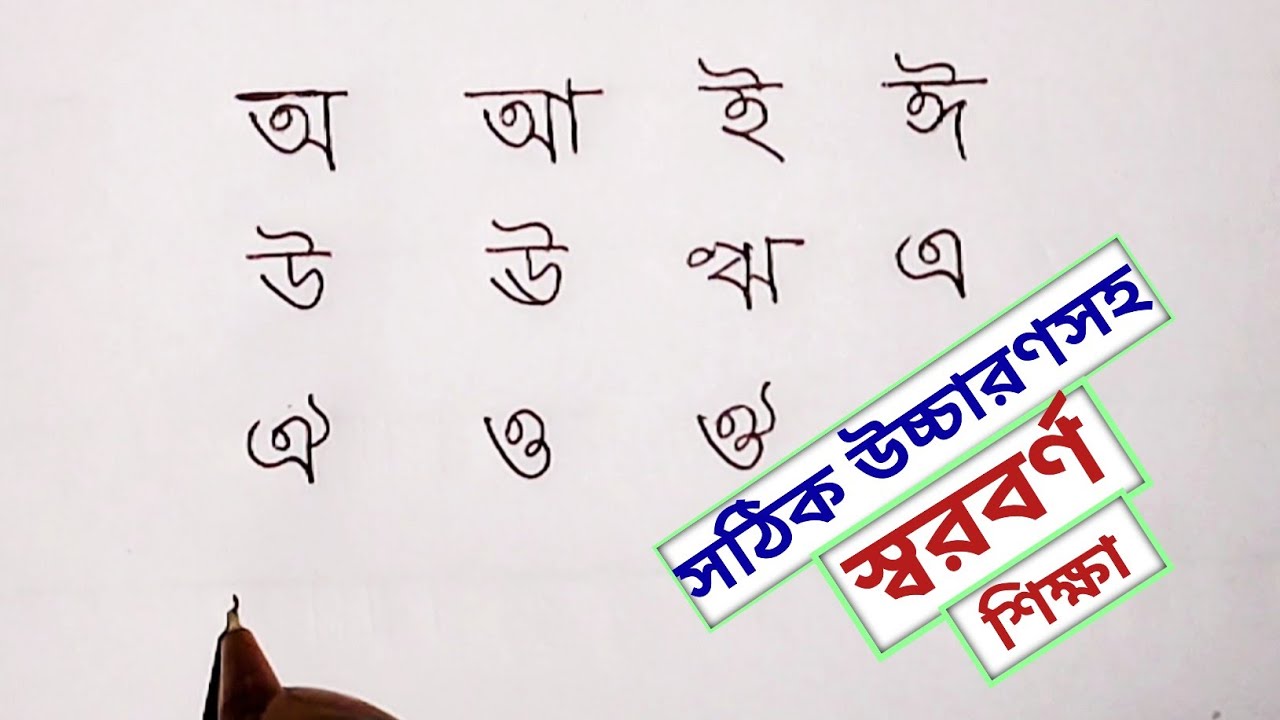 অ আ ই ঈ
উ ঊ ঋ এ
ঐ ও ঔ
সঠিক উচ্চারণসহ
স্বরবর্ণ
শিক্ষা